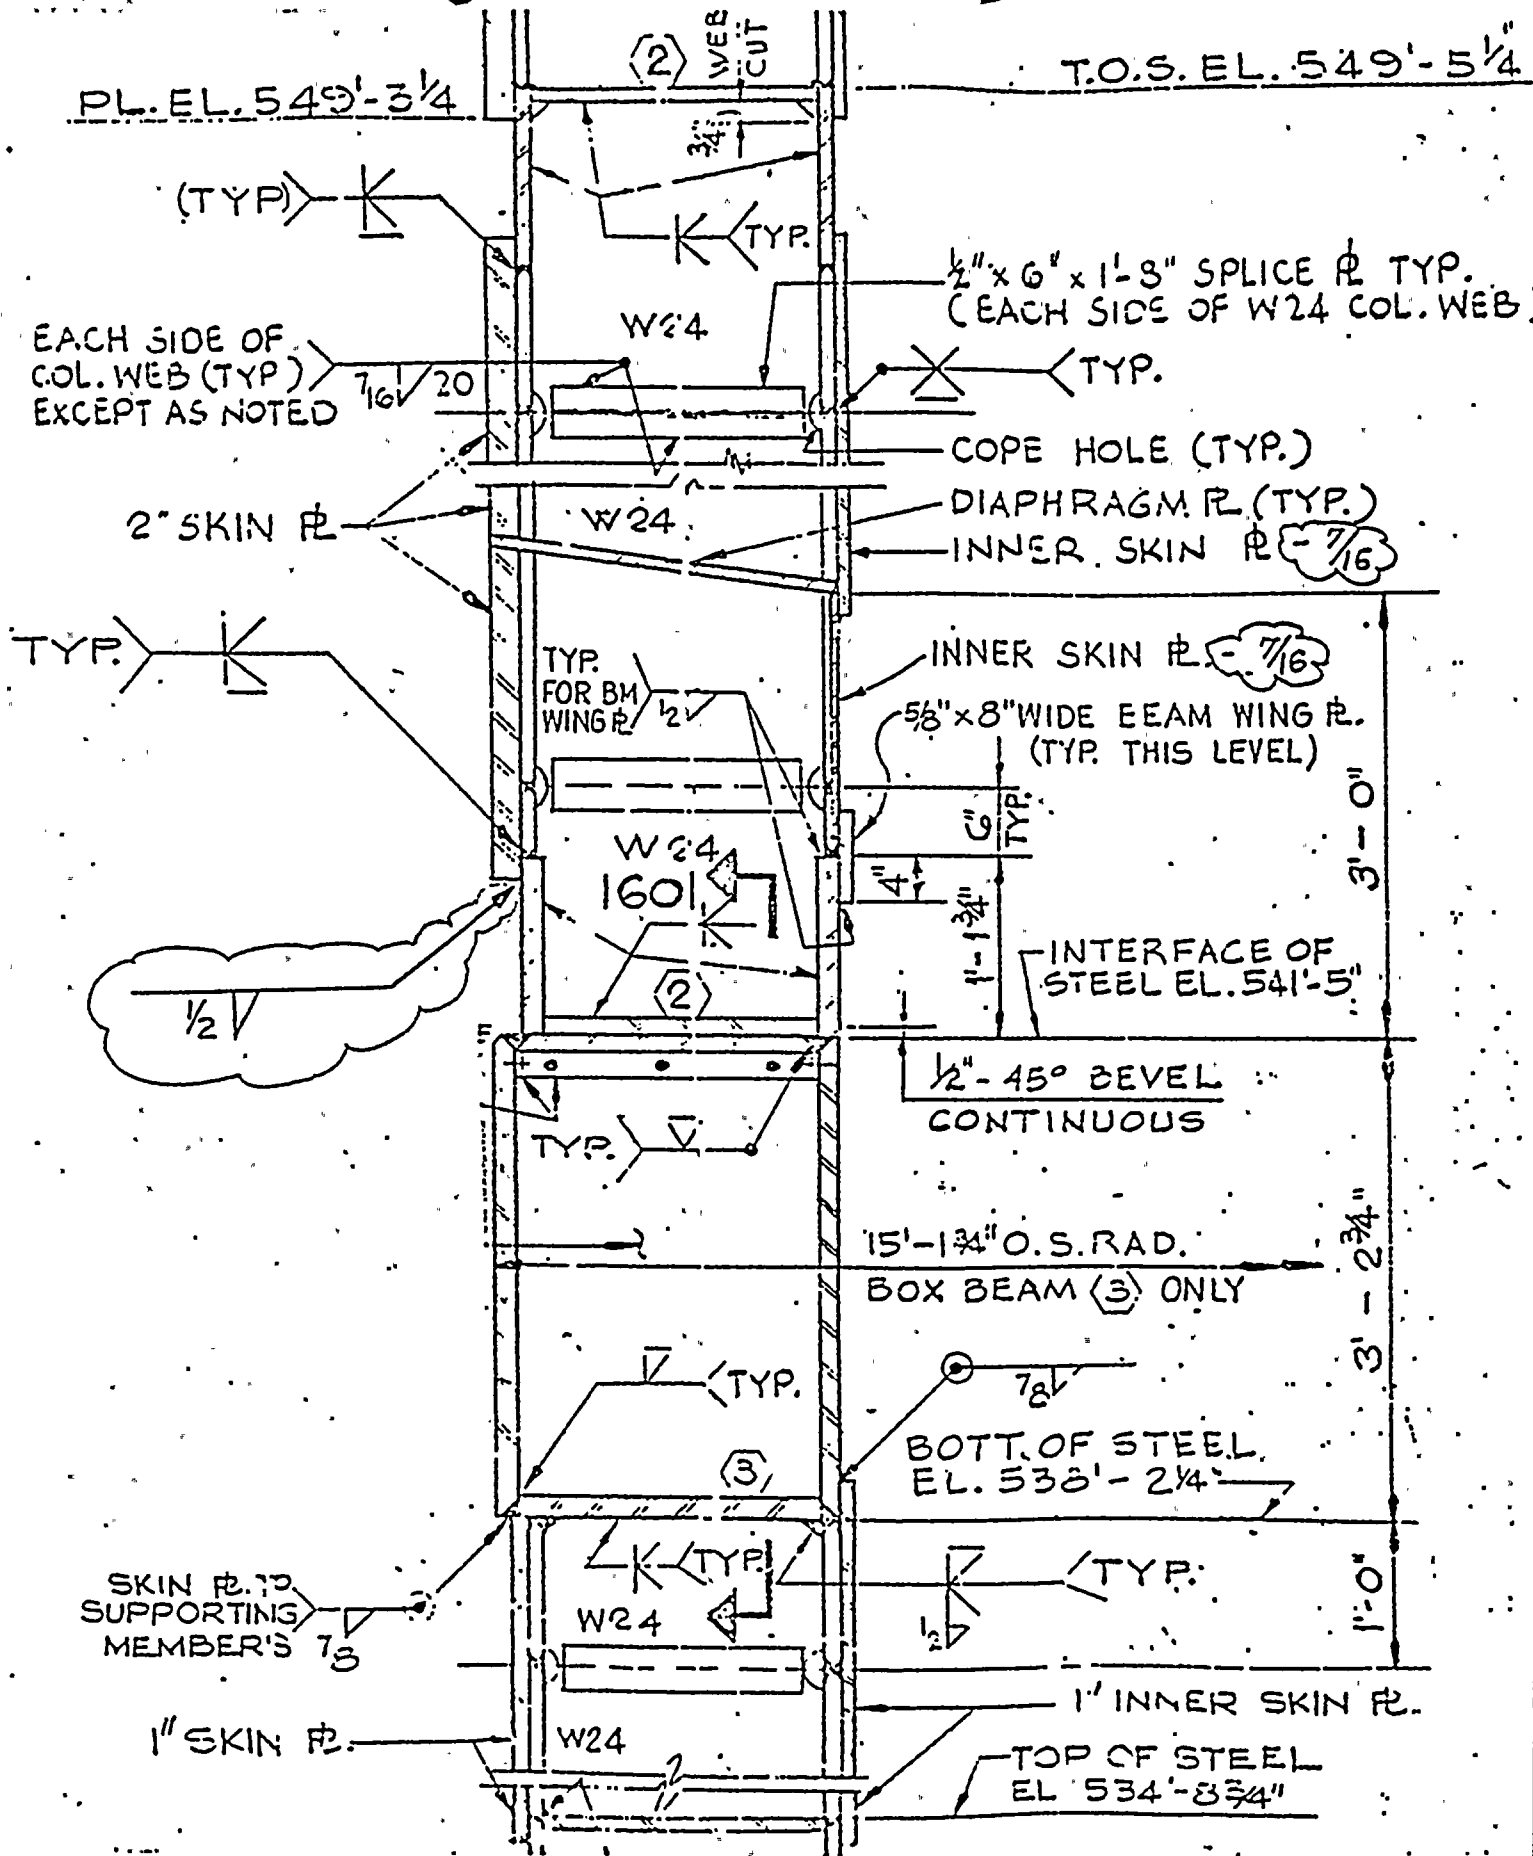 WEB
CUT
2
T.O.S. EL. 549'-5 1/4"
PL. EL. 549'-3 1/4
3/4"
(TYP)
TYP.
1/2" x 6" x 1'-8" SPLICE PL TYP.
(EACH SIDE OF W24 COL. WEB
W24
EACH SIDE OF
COL. WEB (TYP)
EXCEPT AS NOTED
7/16 20
TYP.
COPE HOLE (TYP.)
DIAPHRAGM PL (TYP.)
2" SKIN PL
W24
INNER SKIN PL - 7/16
TYP.
TYP.
FOR BM
WING PL
1/2
INNER SKIN PL - 7/16
5/8" x 8" WIDE BEAM WING PL.
(TYP. THIS LEVEL)
6"
TYP.
3'-0"
W24
1601
4"
1'-1 3/4"
INTERFACE OF
STEEL EL. 541'-5"
2
1/2
1/2"-45° BEVEL
CONTINUOUS
TYP.
15'-1 3/4" O.S. RAD.
BOX BEAM 3 ONLY
3'-2 3/4"
TYP.
7/8
BOTT. OF STEEL
EL. 538'-2 1/4"
3
TYP.
TYP.
1/2
SKIN PL. TO
SUPPORTING
MEMBER'S 7/8
W24
1'-0"
1" INNER SKIN PL.
1" SKIN PL.
W24
TOP OF STEEL
EL 534'-8 3/4"